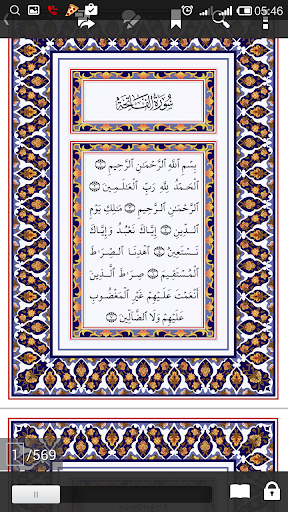 05:46
سُورَةُ الفَاتِحَةِ
بِسْمِ ٱللَّهِ ٱلرَّحْمَٰنِ ٱلرَّحِيمِ ۝
ٱلْحَمْدُ لِلَّهِ رَبِّ ٱلْعَٰلَمِينَ ۝
ٱلرَّحْمَٰنِ ٱلرَّحِيمِ ۝ مَٰلِكِ يَوْمِ
ٱلدِّينِ ۝ إِيَّاكَ نَعْبُدُ وَإِيَّاكَ
نَسْتَعِينُ ۝ ٱهْدِنَا ٱلصِّرَٰطَ
ٱلْمُسْتَقِيمَ ۝ صِرَٰطَ ٱلَّذِينَ
أَنْعَمْتَ عَلَيْهِمْ غَيْرِ ٱلْمَغْضُوبِ
عَلَيْهِمْ وَلَا ٱلضَّآلِّينَ ۝
1 /569